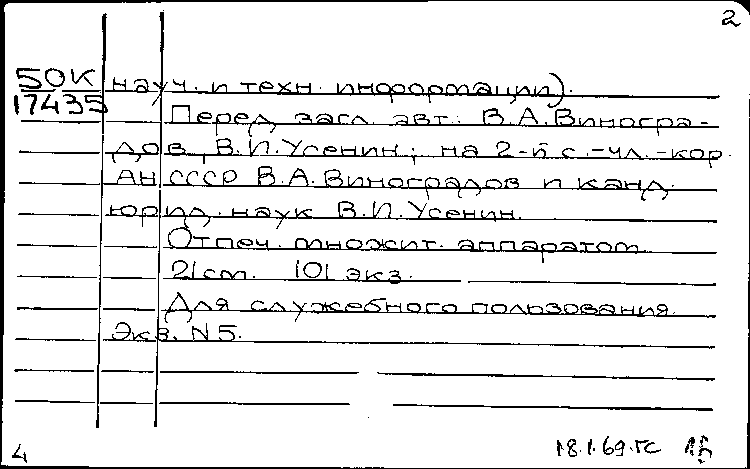 2
50К науч. и техн. информации).
17435
Перед загл. авт.: В.А.Виногра-
дов, В.И.Усенин; на 2-й с.-чл.-кор.
АН СССР В.А.Виноградов и канд.
юрид. наук В.И.Усенин.
Отпеч. множит. аппаратом
21 см. 101 экз.
Для служебного пользования.
Экз. N 5.
4
18.1.69.гс